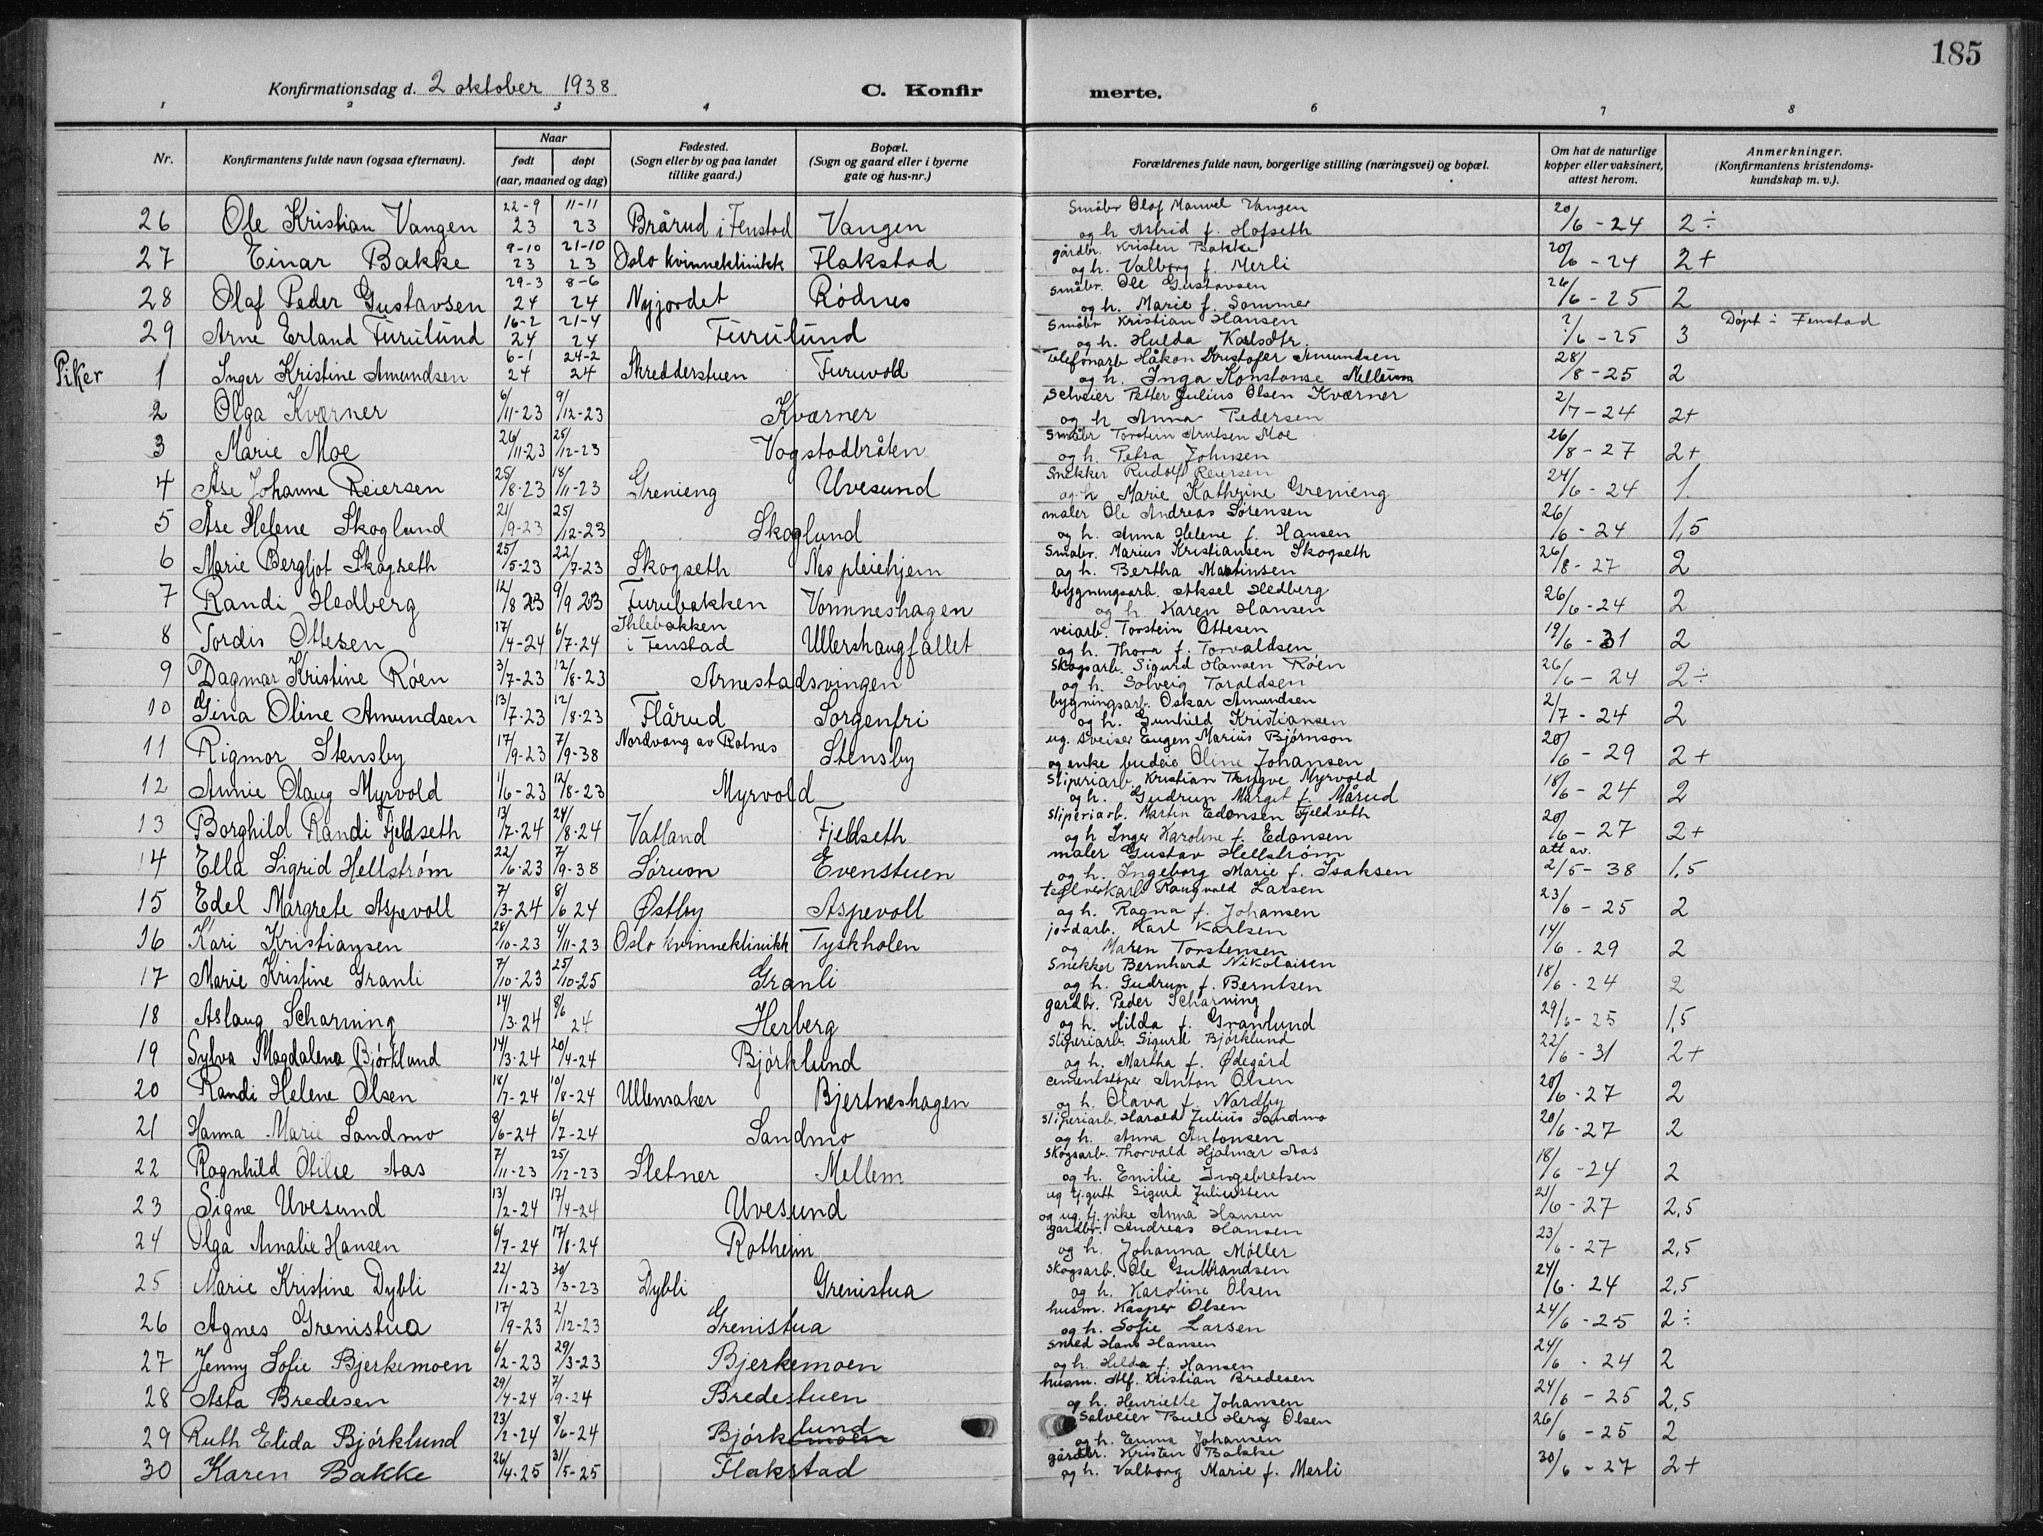 185
Konfirmationsdag d. 2 oktober 1938 C. Konfirmerte.
1 2 3 4 6 7 8
Nr. Konfirmantens fulde navn (ogsaa efternavn). Naar født døpt (aar, maaned og dag) Fødested. (Sogn eller by og paa landet tillike gaard.) Bopæl. (Sogn og gaard eller i byerne gate og hus-nr.) Forældrenes fulde navn, borgerlige stilling (næringsvei) og bopæl. Om hat de naturlige kopper eller vaksinert, attest herom. Anmerkninger. (Konfirmantens kristendoms-kundskap m. v.).
26 Ole Kristian Vangen 22-9 23 11-11 23 Brårud i Fenstad Vangen Småbr Olof Manuel Vangen og h Astrid f. Hofseth 20/6-24 2÷
27 Einar Bakke 9-10 23 21-10 23 Oslo kvinneklinikk Flakstad gårdbr. Kristen Bakke og h. Valborg f. Merli 20/6-24 2+
28 Olaf Peder Gustavsen 29-3 24 8-6 24 Nyjordet Rødnes småbr. Ole Gustavsen og h. Marie f. Sommer 26/6-25 2
29 Arne Erland Furulund 16-2 24 21-4 24 Furulund Småbr Kristian Hansen og h. Hulda Karlsdtr. ?/6-25 3 Døpt i Fenstad
Piker 1 Inger Kristine Amundsen 6-1 24 24-2 24 Skredderstuen Furuvold Telefonarb Håkon Kristofer Amundsen og h. Inga Konstanse Mellum 28/8-25 2
2 Olga Kværner 6/11-23 9/12-23 Kværner Selveier Petter Julius Olsen Kværner og h Anna Pedersen 2/7-24 2+
3 Marie Moe 26/11-23 25/12-23 Vogstadbråten Småbr Torstein Arntsen Moe og h. Petra Johnsen 26/8-27 2+
4 Åse Johanne Reiersen 25/8-23 18/11-23 Grenieng Uvesund Snekker Rudolf Reiersen og h Marie Kathrine Grenieng 24/6-24 1.
5 Åse Helene Skoglund 21/9-23 25/12-23 Skoglund maler Ole Andreas Sørensen og h. Anna Helene f. Hansen 26/6-24 1,5
6 Marie Bergljot Skogseth 25/5-23 22/7-23 Skogseth Nes pleiehjem Småbr. Marius Kristiansen Skogseth og h. Bertha Martinsen 26/8-27 2
7 Randi Hedberg 12/8 23 9/9 23 Furubakken Vormneshagen bygningsarb. Aksel Hedberg og h. Karen Hansen 26/6-24 2
8 Tordis Ottesen 17/4-24 6/7-24 Ihlebakken i Fenstad Ullershaugfallet veiarb. Torstein Ottesen og h. Thora f. Torvaldsen 19/6-31 2
9 Dagmar Kristine Røen 3/7-23 12/8-23 Arnestadsvingen Skogsarb. Sigurd Hansen Røen og h. Solveig Toraldsen 26/6-24 2÷
10 Gina Oline Amundsen 13/7-23 12/8-23 Flårud Sorgenfri bygningsarb. Oskar Amundsen og h. Gunhild Kristiansen 2/7-24 2
11 Rigmor Stensby 17/9-23 7/9-38 Nordvang av Rotnes Stensby ug. sveiser Eugen Marius Bjørnson og enke budeie Oline Johansen 20/6-29 2+
12 Annie Olaug Myrvold 1/6-23 12/8-23 Myrvold Sliperiarb. Kristian Trygve Myrvold og h. Gudrun Margit f. Mårud 18/6-24 2
13 Borghild Randi Fjeldseth 13/7-24 24/8-24 Vatland Fjeldseth Sliperiarb. Martin Edansen Fjeldseth og h Inger Karoline f. Edansen 20/6-27 2+
14 Ella Sigrid Hellstrøm 22/6-23 7/9-38 Sørum Evenstuen maler Gustav Hellstrøm og h. Ingeborg Marie f. Isaksen att av. 2/5-38 1,5
15 Edel Margrete Aspevoll 7/3-24 8/6 24 Østby Aspevoll teglverkarb Raugvald Larsen og h. Ragna f. Johansen 23/6-25 2
16 Kari Kristiansen 28/10-23 4/11-23 Oslo kvinneklinikk Tyskholen jordarb. Karl Karlsen og Maren Torstensen 14/6-29 2
17 Marie Kristine Granli 7/10-23 25/10-25 Granli Snekker Bernhard Nikolaisen og h. Gudrun f. Berntsen 18/6-24 2
18 Aslaug Scharning 14/3-24 8/6 24 Herberg gardbr. Peder Scharning og h. Milda f. Granlund 29/6-25 1,5
19 Sylva Magdalena Bjørklund 14/3-24 20/4-24 Bjørklund Sliperiarb. Sigurd Bjørklund og h. Martha f. Ødegård 22/6-31 2+
20 Randi Helene Olsen 18/7-24 10/8-24 Ullensaker Bjertneshagen cementstøper Anton Olsen og h. Olava f. Nordby 20/6-27 2
21 Hanna Marie Sandmo 8/6-24 6/7-24 Sandmo Sliperiarb. Harald Julius Sandmo og h. Anna Antonsen 20/6-27 2
22 Ragnhild Otilie Aas 7/11-23 25/12-23 Sletner Mellem Skogsarb. Thorvald Hjalmar Aas og h. Emilie Ingebretsen 18/6-24 2
23 Signe Uvesund 13/2-24 17/4-24 Uvesund ug tj.gutt Sigurd Juliussen og ug. tj. pike Anna Hansen 21/6-27 2,5
24 Olga Amalie Hansen 6/7-24 17/8-24 Rotheim gardbr. Andreas Hansen og h. Johanna Møller 23/6-27 2,5
25 Marie Kristine Dybli 22/1-23 30/3-23 Dybli Grenistua Skogsarb. Ole Gulbrandsen og h. Karoline Olsen 24/6-24 2,5
26 Agnes Grenistua 17/9-23 2/12-23 Grenistua husm. Kasper Olsen og h. Sofie Larsen 24/6-25 2÷
27 Jenny Sofie Bjerkemoen 6/2-23 29/3-23 Bjerkemoen Smed Hans Hansen og h. Hilda f. Hansen 24/6-24 2
28 Asta Bredesen 29/4-24 7/9-24 Bredestuen husm. Alf. Kristian Bredesen og h. Henriette Johansen 24/6-25 2,5
29 Ruth Elida Bjørklund 23/2-24 8/6-24 Bjørklund Selveier Paul Henry Olsen og h. Emma Johansen 26/6-25 2
30 Karen Bakke 26/4-25 31/5-25 Flakstad gårdbr. Kristen Bakke og h. Valborg Marie f. Merli 30/6-27 2+